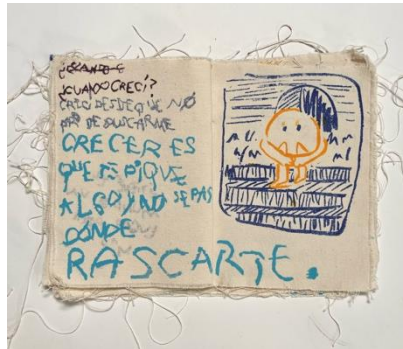 ¿CUANDO CRECÍ?
CREO DESDE QUE NO
DE BUSCARME
CRECER ES
QUE TE PIQUE
ALGO Y NO SEPAS
DÓNDE
RASCARTE.